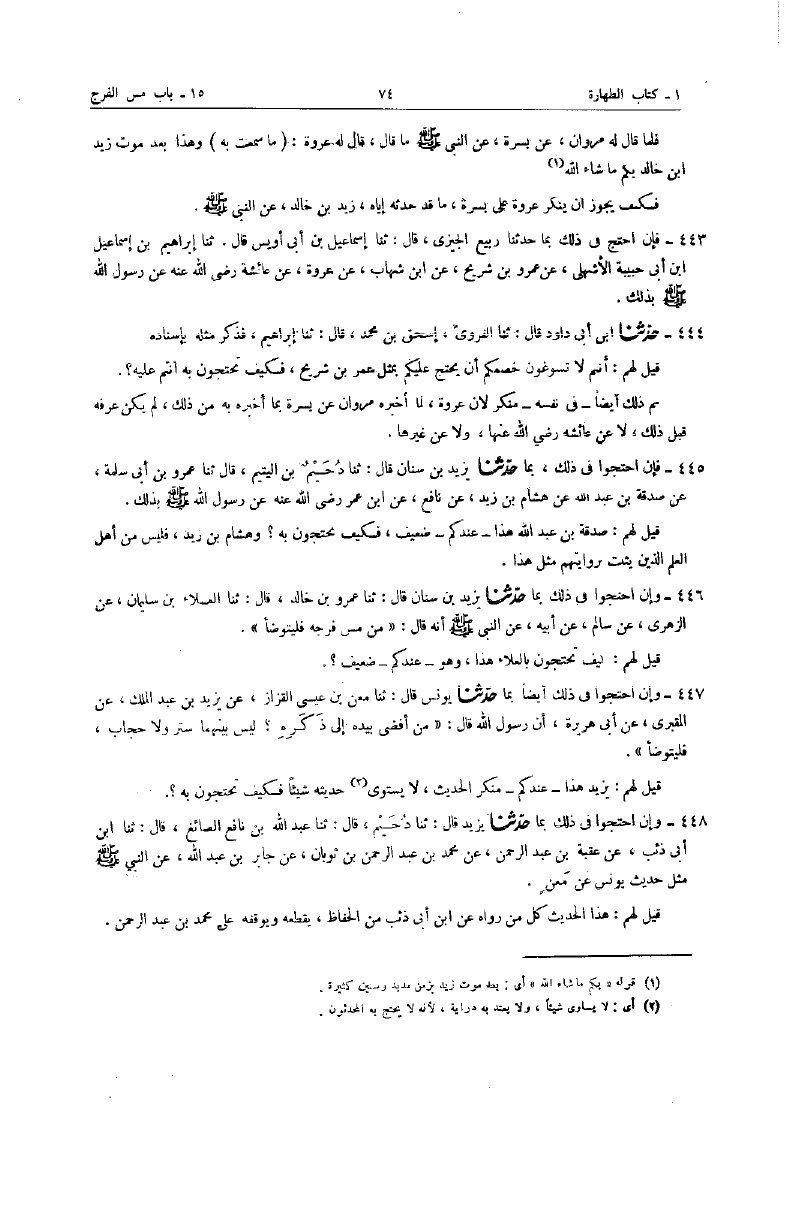 ١ ـ كتاب الطهارة ٧٤ ١٥ ـ باب مس الفرج
فلما قال له مروان ، عن بسرة ، عن النبي ﷺ ما قال ، قال له عروة : ( ما سمعت به ) وهذا بعد موت زيد
ابن خالد بكم ما شاء الله(١)
فكيف يجوز ان ينكر عروة على بسرة ، ما قد حدثه إياه ، زيد بن خالد ، عن النبي ﷺ .
٤٤٣ ـ فإن احتج فى ذلك بما حدثنا ربيع الجيزى ، قال : ثنا إسماعيل بن أبى أويس قال . ثنا إبراهيم بن إسماعيل
ابن أبى حبيبة الأشهلى ، عن عمرو بن شريح ، عن ابن شهاب ، عن عروة ، عن عائشة رضى الله عنه عن رسول الله
ﷺ بذلك .
٤٤٤ ـ حدثنا ابى أبى داود قال : ثنا الفروىّ ، إسحق بن محمد ، قال : ثنا إبراهيم ، فذكر مثله بإسناده
قيل لهم : أنتم لا تسوغون خصمكم أن يحتج عليكم بمثل عمر بن شريح ، فكيف تحتجون به أنتم عليه؟ .
ثم ذلك أيضاً ـ فى نفسه ـ منكر لان عروة ، لما أخبره مروان عن بسرة بما أخبره به من ذلك ، لم يكن عرفه
قبل ذلك ، لا عن عائشه رضي الله عنها ، ولا عن غيرها .
٤٤٥ ـ فإن احتجوا فى ذلك ، بما حدثنا يزيد بن سنان قال : ثنا دُحَيْمُ بن اليتيم ، قال ثنا عمرو بن أبى سلمة ،
عن صدقة بن عبد الله عن هشام بن زيد ، عن نافع ، عن ابن عمر رضى الله عنه عن رسول الله ﷺ بذلك.
قيل لهم : صدقة بن عبد الله هذا ـ عندكم ـ ضعيف ، فكيف تحتجون به ؟ وهشام بن زيد ، فليس من أهل
العلم الذين يثبت بروايتهم مثل هذا .
٤٤٦ ـ وإن احتجوا فى ذلك بما حدثنا يزيد بن سنان قال : ثنا عمرو بن خالد ، قال : ثنا العلاء بن سليمان ، عن
الزهرى ، عن سالم ، عن أبيه ، عن النبى ﷺ أنه قال : « من مس فرجه فليتوضأ » .
قيل لهم : كيف تحتجون بالعلاء هذا ، وهو ـ عندكم ـ ضعيف ؟ .
٤٤٧ ـ وإن احتجوا فى ذلك أيضاً بما حدثنا يونس قال : ثنا معن بن عيسى القزاز ، عن يزيد بن عبد الملك ، عن
المقبرى ، عن أبى هريرة ، أن رسول الله قال : « من أفضى بيده إلى ذَكَرِهِ ؟ ليس بينهما ستر ولا حجاب ،
فليتوضأ » .
قيل لهم : يزيد هذا ـ عندكم ـ منكر الحديث ، لا يستوى(٢) حديثه شيئاً فكيف تحتجون به ؟.
٤٤٨ ـ وإن احتجوا فى ذلك بما حدثنا يزيد قال : ثنا دُحَيْم ، قال : ثنا عبد الله بن نافع الصائغ ، قال : ثنا ابن
أبى ذئب ، عن عقبة بن عبد الرحمن ، عن محمد بن عبد الرحمن بن ثوبان ، عن جابر بن عبد الله ، عن النبي ﷺ
مثل حديث يونس عن مَعن .
قيل لهم : هذا الحديث كل من رواه عن ابن أبى ذئب من الحفاظ ، يقطعه ويوقفه على محمد بن عبد الرحمن .
(١) قوله « بكم ما شاء الله » أى : بعد موت زيد بزمن مديد وسنين كثيرة .
(٢) أى : لا يساوى شيئاً ، ولا يعتد به دراية ، لأنه لا يحتج به المحدثون .